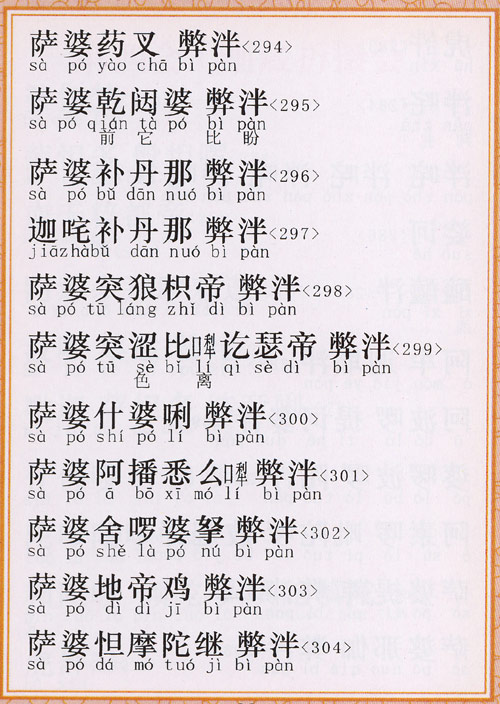 萨婆药叉 弊泮<294>
sà pó yào chā bì pàn
萨婆乾闼婆 弊泮<295>
sà pó qián tà pó bì pàn
前它 比盼
萨婆补丹那 弊泮<296>
sà pó bǔ dān nuó bì pàn
迦咤补丹那 弊泮<297>
jiāzhàbǔ dān nuó bì pàn
萨婆突狼枳帝 弊泮<298>
sà pó tū láng zhǐ dì bì pàn
萨婆突涩比㗚讫瑟帝 弊泮<299>
sà pó tū sè bǐ lí qì sè dì bì pàn
色 离
萨婆什婆唎 弊泮<300>
sà pó shí pó lí bì pàn
萨婆阿播悉么㗚 弊泮<301>
sà pó ā bō xī mó lí bì pàn
萨婆舍啰婆拏 弊泮<302>
sà pó shě là pó nú bì pàn
萨婆地帝鸡 弊泮<303>
sà pó dì dì jī bì pàn
萨婆怛摩陀继 弊泮<304>
sà pó dá mó tuó jì bì pàn